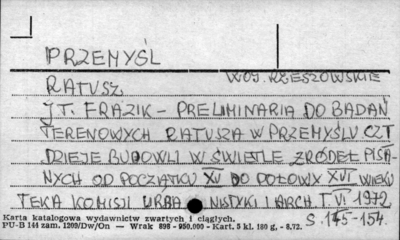 PRZEMYŚL
RATUSZ WOJ. RZESZOWSKIE
J. T. FRAZIK - PRELIMINARIA DO BADAŃ
TERENOWYCH RATUSZA W PRZEMYŚLU CZ I
DZIEJE BUDOWLI W ŚWIETLE ŹRÓDEŁ PISA-
NYCH OD POCZĄTKU XV DO POŁOWY XVI WIEKU
TEKA KOMISJI URBANISTYKI I ARCH. T. VI 1972
S. 145-154.
Karta katalogowa wydawnictw zwartych i ciągłych.
PU-B 144 zam. 1209/Dw/On — Wrak 898 - 950.000 - Kart. 5 kl. 180 g. - 8.72.